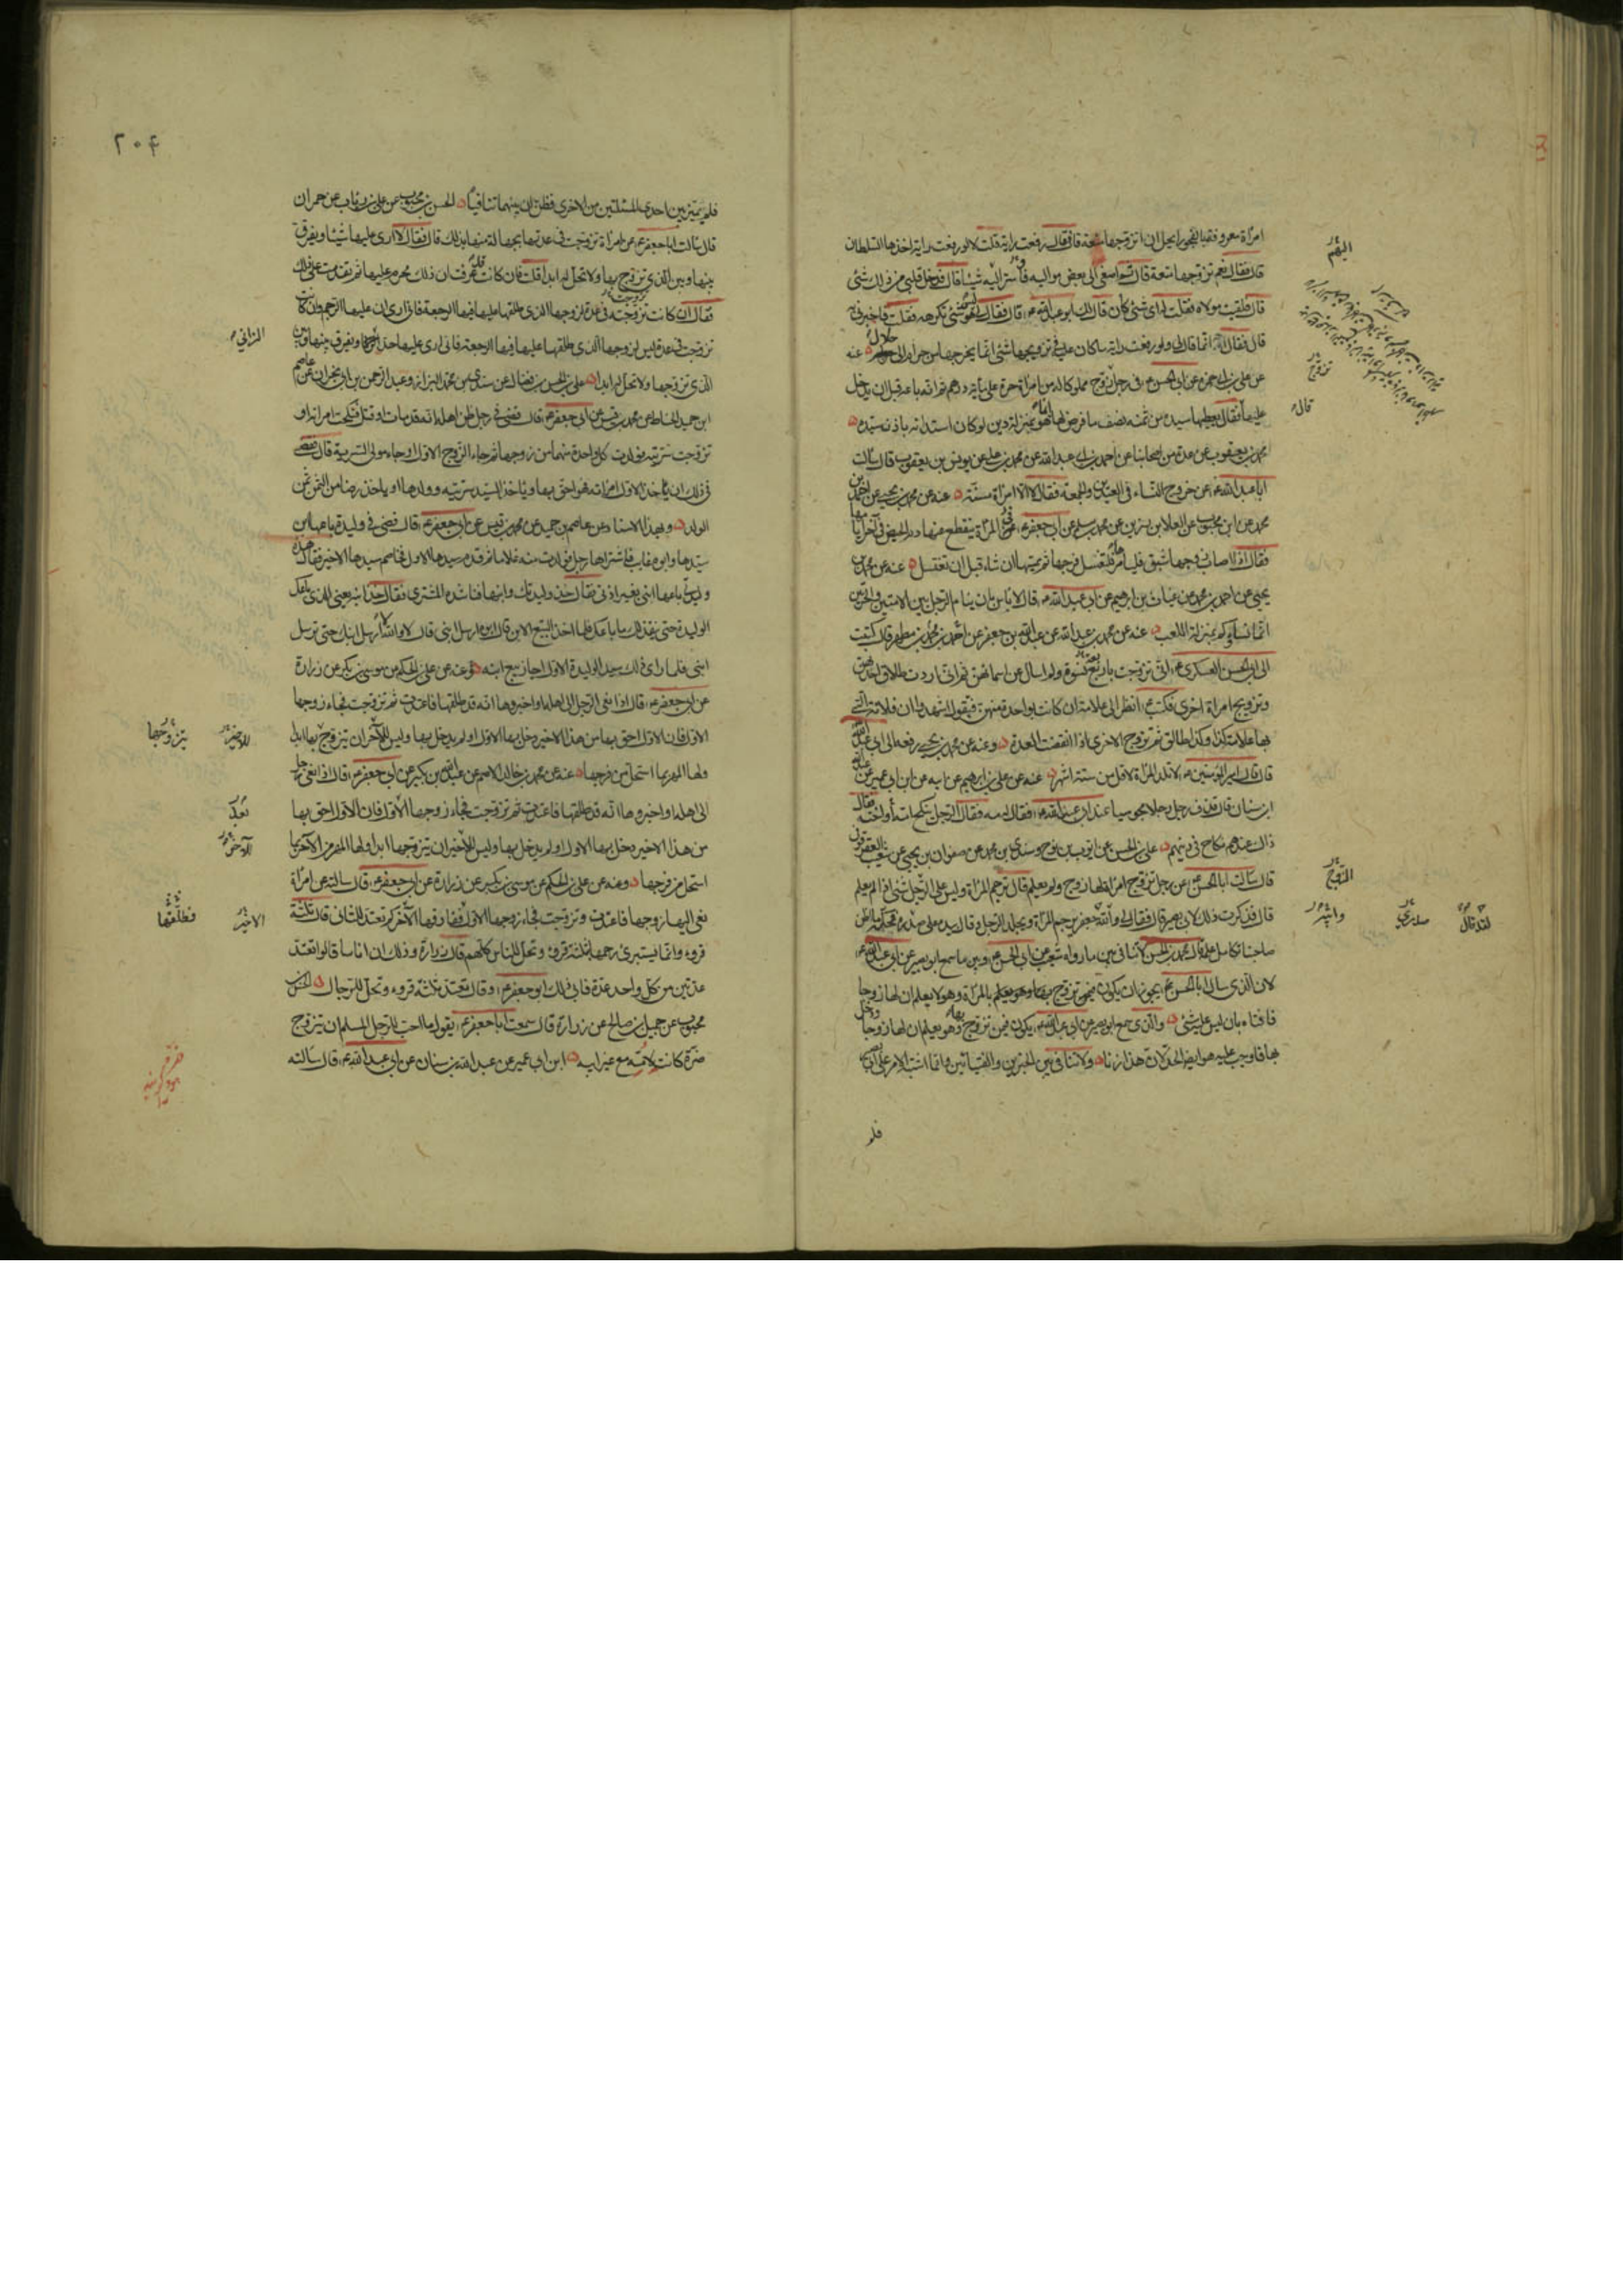 امرأة معروفة بالفجور ايحل ان اتزوجها متعة قال فقال رفعت راية قلت لا لو رفعت راية اخذها السلطان
قال فقال نعم تزوجها متعة قال ثم اصغى الى بعض مواليه فاسر اليه شيئا قال فدخل قلبي من ذلك شئ
قال فلقيت مولاه فقلت له اي شئ كان قال لك ابو عبد الله ع قال فقال لي ليس هو شئ تكرهه فقلت فاخبرني به
قال فقال انما قال لي ولو رفعت راية ما كان عليه في تزويجها شئ انما يخرجها من حرام الى حلال عنه
عن علي بن ابي حمزة عن ابي الحسن ع في رجل تزوج مملوكا له من امرأة حرة على مائة درهم ثم انه باعه قبل ان يدخل
عليها فقال يعطيها سيده من ثمنه نصف ما فرض لها انما هو بمنزلة دين لو كان استدانه باذن سيده
محمد بن يعقوب عن عدة من اصحابنا عن احمد بن ابي عبد الله عن محمد بن علي عن يونس بن يعقوب قال سالت
ابا عبد الله ع عن خروج النساء في العيدين والجمعة فقال لا الا امرأة مسنة عنه عن محمد بن يحيى عن احمد بن
محمد عن ابن محبوب عن العلا بن رزين عن محمد بن مسلم عن ابي جعفر ع في المرأة ينقطع عنها دم الحيض في آخر ايامها
فقال اذا اصاب زوجها شبق فليامرها فلتغسل فرجها ثم يمسها ان شاء قبل ان تغتسل عنه عن محمد بن
يحيى عن احمد بن محمد عن غياث بن ابرهيم عن ابي عبد الله ع قال لا باس بان ينام الرجل بين الامتين والحرتين
انما نساؤكم بمنزلة اللعب عنه عن محمد بن عبد الله عن عبد الله بن جعفر عن احمد بن محمد بن مطهر قال كتبت
الى ابي الحسن العسكري ع اني تزوجت باربع نسوة ولم اسال عن اسمائهن ثم اني اردت طلاق احداهن
وتزويج امرأة اخرى فكتب ع انظر الى علامة ان كانت بواحدة منهن فتقول اشهدوا ان فلانة التي
بها علامة كذا وكذا طالق ثم تزوج الاخرى اذا انقضت العدة وعنه عن محمد بن يحيى رفعه الى ابي عبد الله
قال قال امير المؤمنين ع لا تلد المرأة لاقل من ستة اشهر عنه عن علي بن ابرهيم عن ابيه عن ابن ابي عمير عن عبد الله
ابن سنان قال قذف رجل رجلا مجوسيا عند ابي عبد الله ع فقال له مه فقال الرجل ينكح امه او اخته فقال
ذاك عندهم نكاح في دينهم علي بن الحسن عن ايوب بن نوح وسندي بن محمد عن صفوان بن يحيى عن شعيب العقرقوفي
قال سالت ابا الحسن ع عن رجل تزوج امرأة لها زوج ولم يعلم قال ترجم المرأة وليس على الرجل شئ اذا لم يعلم
قال فذكرت ذلك لابي بصير قال فقال لي والله جعفر ترجم المرأة ويجلد الرجل وقال بيده على صدره
صاحبنا تكامل علمه قال محمد بن الحسن لا تنافي بين ما رواه شعيب عن ابي الحسن ع وبين ما سمع ابو بصير عن ابي عبد الله ع
لان الذي سال ابا الحسن ع يجوز ان يكون فيمن تزوج بالمرأة وهو لا يعلم ان لها زوجا
فافتاه بان ليس عليه شئ والذي سمع ابو بصير من ابي عبد الله يكون فيمن تزوج بها وهو يعلم ان لها زوجا ودخل
بها فاوجب عليه هو ايضا الحد لان هذا زنا ولا تنافي بين الخبرين والفتيائين وانما اشتبه الامر على ابي بصير
فلم
اليهم
تزوج
قال
الزوج
واشهد
صدري
٢٠٤
فلم يميز بين احدى المسئلتين من الاخرى فظن ان بينهما تنافيا الحسن بن محبوب عن علي بن رئاب عن حمران
قال سالت ابا جعفر ع عن امرأة تزوجت في عدتها بجهالة منها بذلك قال فقال لا ارى عليها شيئا ويفرق
بينها وبين الذي تزوج بها ولا تحل له ابدا قلت فان كانت قد عرفت ان ذلك محرم عليها ثم تقدمت على ذلك
فقال ان كانت تزوجته في عدة لزوجها الذي طلقها عليها فيها الرجعة فاني ارى ان عليها الرجم وان كانت
تزوجت في عدة ليس لزوجها الذي طلقها عليها فيها الرجعة فاني ارى عليها حد ويفرق بينها وبين
الذي تزوجها ولا تحل له ابدا علي بن الحسن بن فضال عن سندي بن محمد البزاز وعبد الرحمن بن ابي نجران عن عاصم
ابن حميد الحناط عن محمد بن قيس عن ابي جعفر ع قال قضى في رجل ظن اهله انه قد مات او قتل فنكحت امرأته او
تزوجت سريته فولدت كل واحدة منهما من زوجها ثم جاء الزوج الاول او جاء مولى السرية قال فقضى
في ذلك ان ياخذ الاول امرأته فهو احق بها وياخذ السيد سريته وولدها او ياخذ رضا من الثمن ثمن
الولد وبهذا الاسناد عن عاصم بن حميد عن محمد بن قيس عن ابي جعفر ع قال قضى في وليدة باعها ابن
سيدها وابوه غايب فاشتراها رجل فولدت منه غلاما ثم قدم سيدها الاول فخاصم سيدها الاخير فقال هذه
وليدتي باعها ابني بغير اذني فقال خذ وليدتك وابنها فناشده المشتري فقال خذ ابنه يعني الذي باعك
الوليدة حتى ينفذ لك ما باعك فلما اخذ البيع الابن قال ابوه ارسل ابني قال لا والله لا ارسل ابنك حتى ترسل
ابني فلما راى ذلك سيد الوليدة الاول اجاز بيع ابنه وعنه عن علي بن الحكم عن موسى بن بكر عن زرارة
عن ابي جعفر ع قال اذا نعي الرجل الى اهله او اخبروها انه قد طلقها فاعتدت ثم تزوجت فجاء زوجها
الاول فان الاول احق بها من هذا الاخير دخل بها الاول او لم يدخل بها وليس للآخر ان يتزوج بها ابدا
ولها المهر بما استحل من فرجها عنه عن محمد بن خالد الاصم عن عبد الله بن بكير عن ابي جعفر ع قال اذا نعي رجل
الى اهله او اخبروها انه قد طلقها فاعتدت ثم تزوجت فجاء زوجها الاول فان الاول احق بها
من هذا الاخير دخل بها الاول او لم يدخل بها وليس للاخير ان يتزوجها ابدا ولها المهر من الآخر بما
استحل من فرجها وعنه عن علي بن الحكم عن موسى بن بكر عن زرارة عن ابي جعفر ع قال سالته عن امرأة
نعي اليها زوجها فاعتدت وتزوجت فجاء زوجها الاول ففارقها الآخر كم تعتد للثاني قال ثلثة
قروء وانما يستبرئ رحمها بثلثة قروء وتحل للناس كلهم قال زرارة وذلك ان اناسا قالوا تعتد
عدتين من كل واحد عدة فابى ذلك ابو جعفر ع وقال تعتد ثلثة قروء وتحل للرجال الحسن بن
محبوب عن جميل بن صالح عن زرارة قال سمعت ابا جعفر ع يقول ما احب للرجل المسلم ان يتزوج
ضرة كانت لامه مع غير ابيه ابن ابي عمير عن عبد الله بن سنان عن ابي عبد الله ع قال سالته
الزاني
للاخير
يتزوجها
بعد
الآخر
الاخير
فطلقها